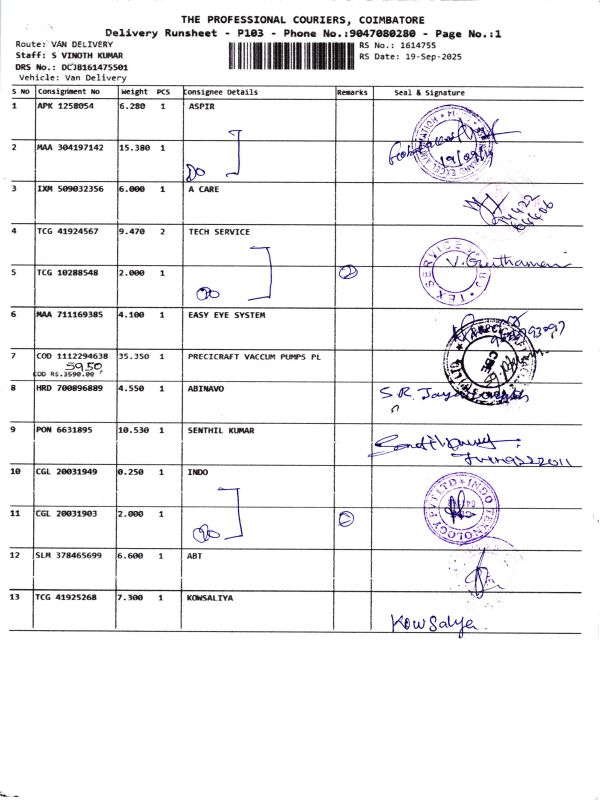 THE PROFESSIONAL COURIERS, COIMBATORE
Delivery Runsheet - P103 - Phone No.:9047080280 - Page No.:1
Route: VAN DELIVERY
RS No.: 1614755
Staff: S VINOTH KUMAR
RS Date: 19-Sep-2025
DRS No.: DCJB161475501
Vehicle: Van Delivery
S No Consignment No Weight PCS Consignee Details Remarks Seal & Signature
1 APK 1258054 6.280 1 ASPIR
2 MAA 304197142 15.380 1 Do
3 IXM 509032356 6.000 1 A CARE
94422
4 TCG 41924567 9.470 2 TECH SERVICE
5 TCG 10288548 2.000 1 Do 2 TEX SERVICE
6 MAA 711169385 4.100 1 EASY EYE SYSTEM
7 COD 1112294638 35.350 1 PRECICRAFT VACCUM PUMPS PL
5950
COD Rs.3590.00
CBE
8 HRD 700896889 4.550 1 ABINAVO S.R.
9 PON 6631895 10.530 1 SENTHIL KUMAR
10 CGL 20031949 0.250 1 INDO
11 CGL 20031903 2.000 1 Do 2 INDO TEKNOLOGY PVT LTD
12 SLM 378465699 6.600 1 ABT
13 TCG 41925268 7.300 1 KOWSALIYA
Kowsalya